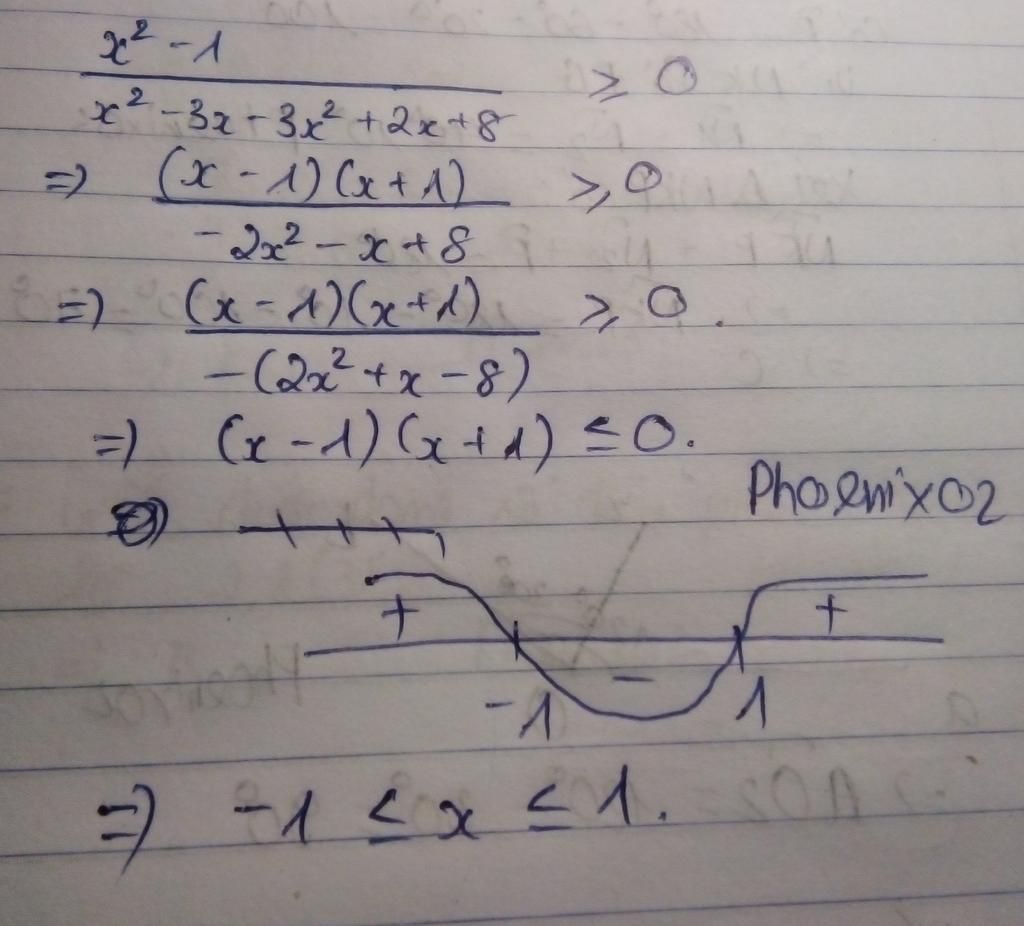 x² - 1
x² - 3x - 3x² + 2x + 8 ≥ 0
=> (x - 1)(x + 1) ≥ 0
- 2x² - x + 8
=> (x - 1)(x + 1) ≥ 0.
- (2x² + x - 8)
=> (x - 1)(x + 1) ≤ 0.
PhoenixO2
+ - +
-1 1
=> -1 ≤ x ≤ 1.